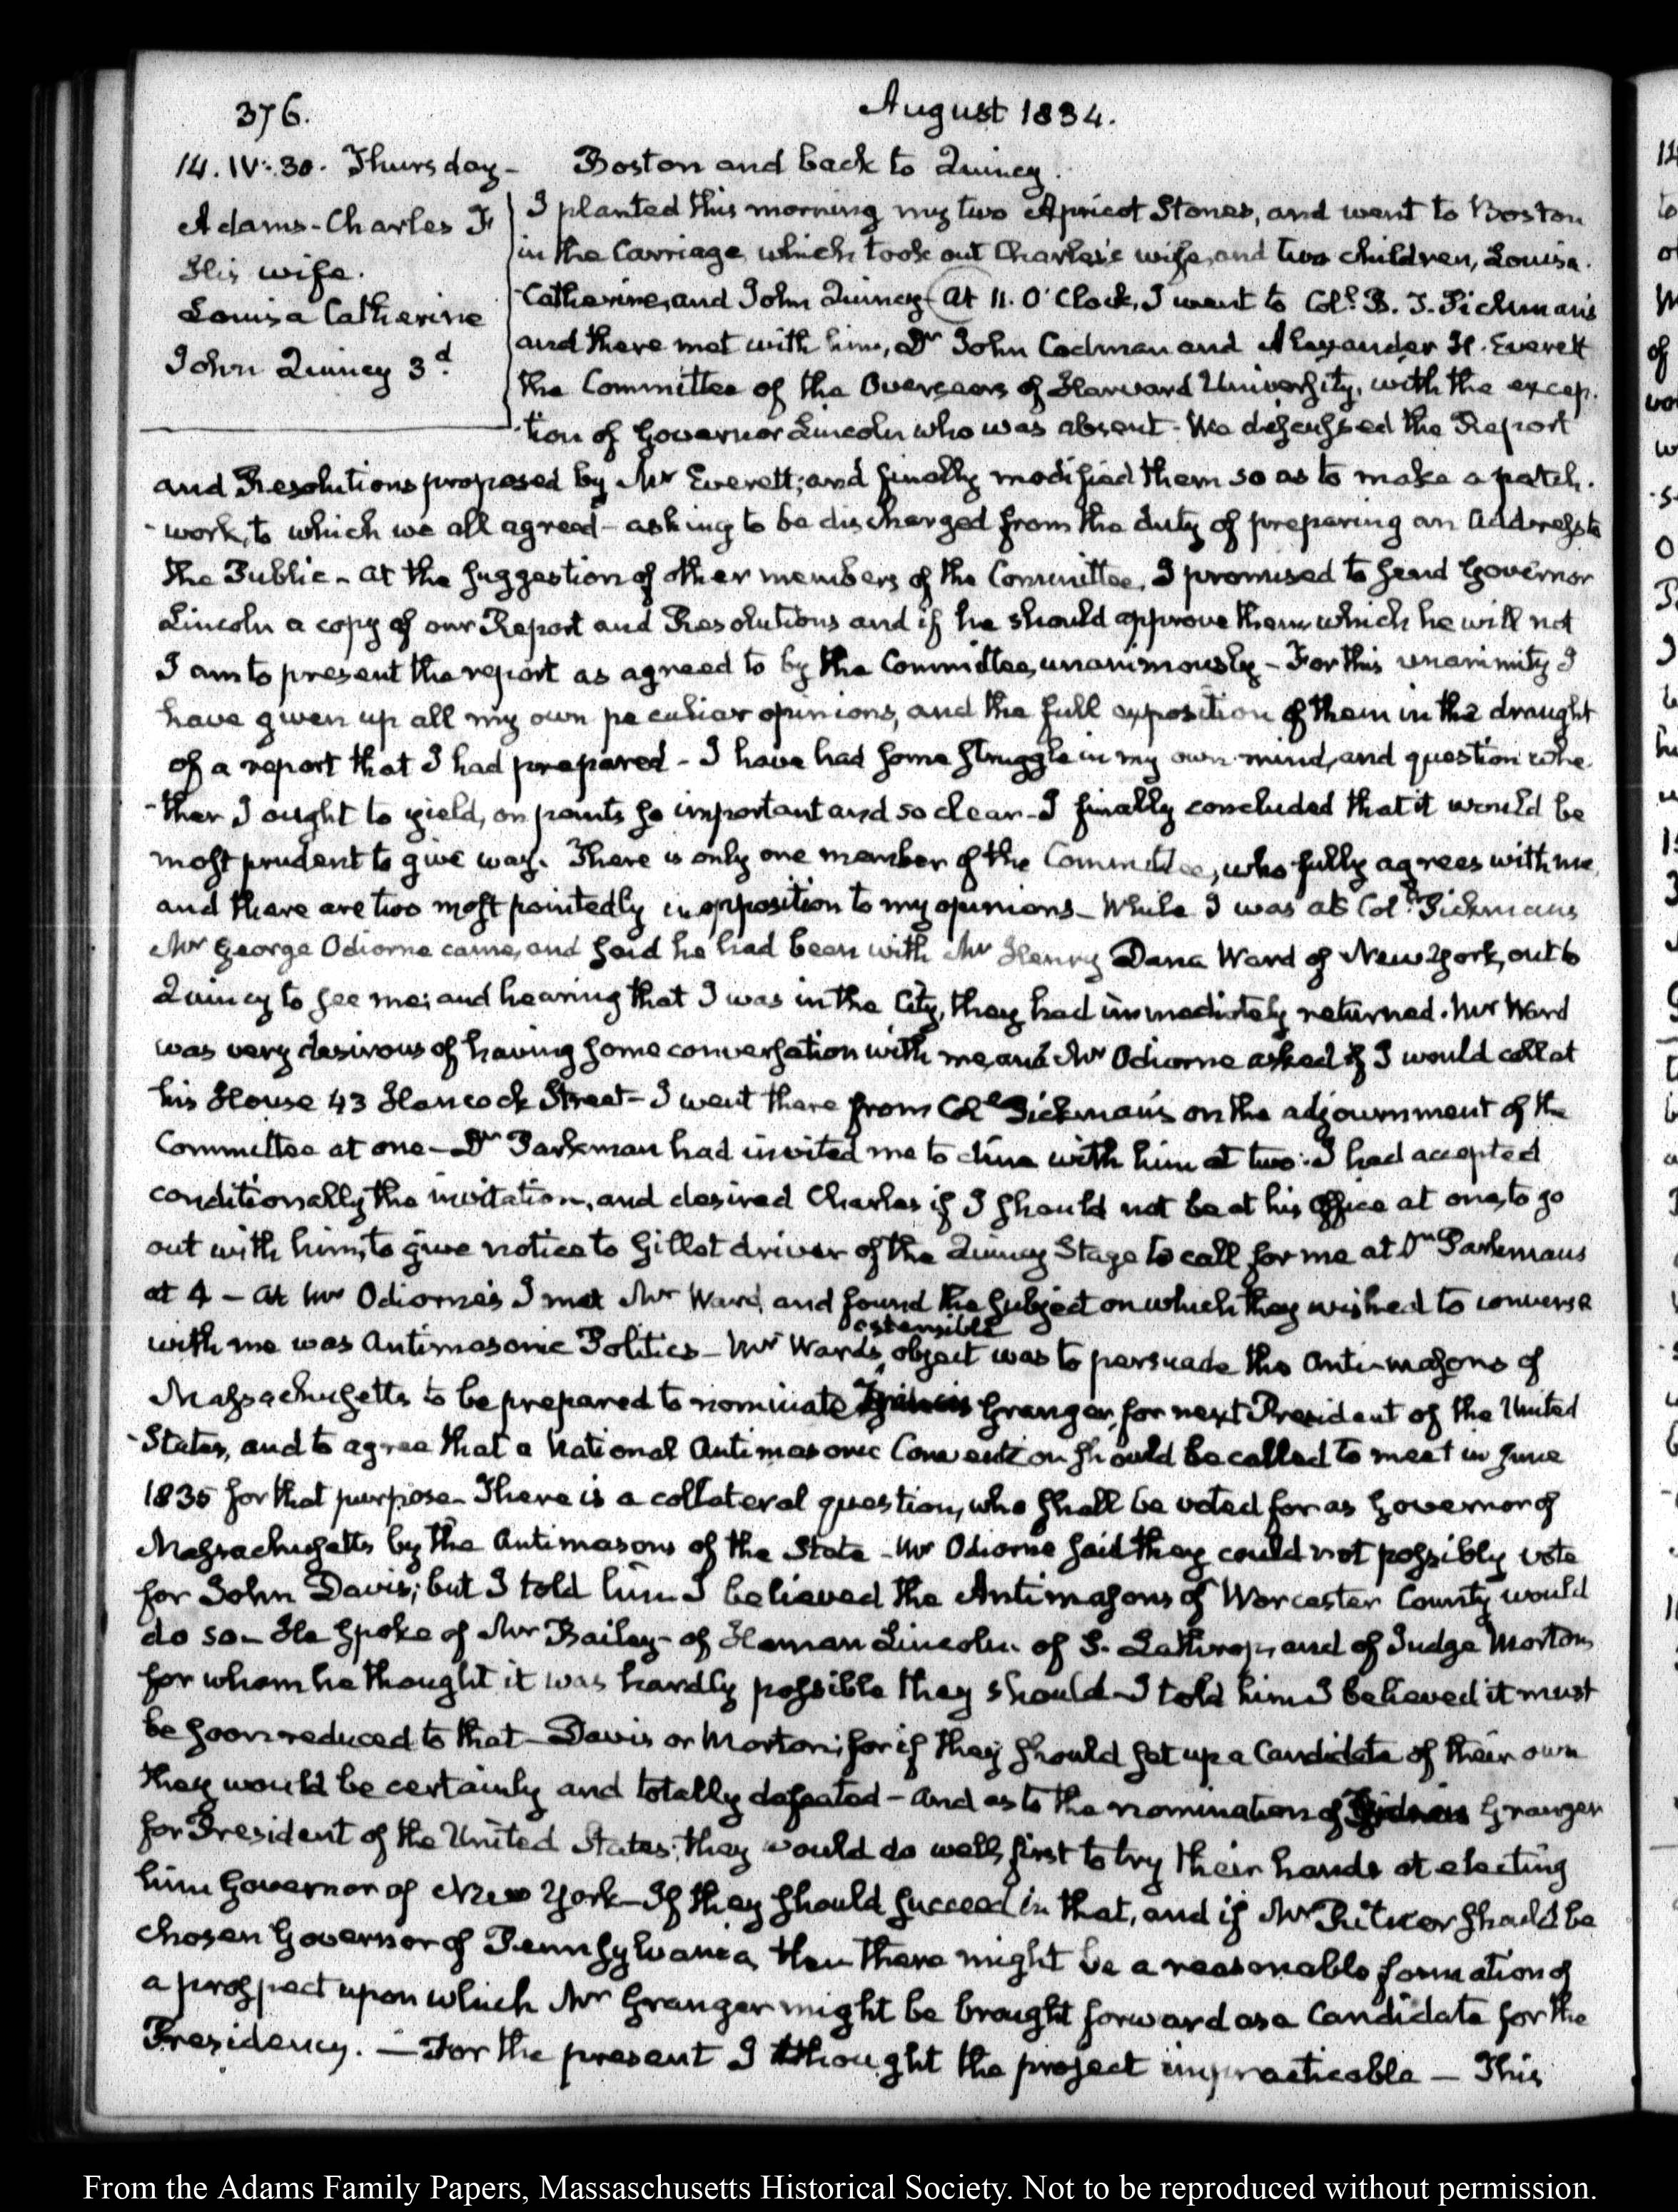 376.
August 1834.
14. IV:30. Thursday-
Boston and back to Quincy.
Adams-Charles F
His wife.
Louisa Catherine
John Quincy 3.d
I planted this morning my two Apricot Stones, and went to Boston
in the Carriage, which took out Charles's wife, and two children, Louisa-
Catherine, and John Quincy- At 11. O'Clock, I went to Col.l B. T. Pickman's
and there met with him, Dr John Codman and Alexander H. Everett
the Committee of the Overseers of Harvard University, with the excep-
-tion of Governor Lincoln who was absent- We discussed the Report
and Resolutions proposed by Mr Everett; and finally modified them so as to make a patch-
-work, to which we all agreed- asking to be discharged from the duty of preparing an Address to
the Public- at the suggestion of other members of the Committee, I promised to send Governor
Lincoln a copy of our Report and Resolutions and if he should approve them which he will not
I am to present the report as agreed to by the Committee, unanimously- For this unanimity I
have given up all my own peculiar opinions, and the full exposition of them in the draught
of a report that I had prepared- I have had some struggle in my own mind, and question whe-
-ther I ought to yield, on points so important and so clear- I finally concluded that it would be
most prudent to give way. There is only one member of the Committee, who fully agrees with me,
and there are two most pointedly in opposition to my opinions- While I was at Col.l Pickmans
Mr George Odiorne came, and said he had been with Mr Henry Dana Ward of New York, out to
Quincy to see me; and hearing that I was in the City, they had immediately returned. Mr Ward
was very desirous of having some conversation with me, and Mr Odiorne asked if I would call at
his House 43 Hancock Street- I went there from Col.l Pickman's on the adjournment of the
Committee at one- Dr Parkman had invited me to dine with him at two: I had accepted
conditionally the invitation, and desired Charles if I should not be at his Office at one, to go
out with him, to give notice to Gillet driver of the Quincy Stage to call for me at Dr Parkmans
at 4- At Mr Odiorne's I met Mr Ward, and found the subject on which they wished to converse
with me was Antimasonic Politics- Mr Wards ostensible object was to persuade the Anti-masons of
Massachusetts to be prepared to nominate Francis Granger, for next President of the United
-States, and to agree that a National Antimasonic Convention should be called to meet in June
1835 for that purpose- There is a collateral question, who shall be voted for as Governor of
Massachusetts by the Antimasons of the State- Mr Odiorne said they could not possibly vote
for John Davis; but I told him I believed the Antimasons of Worcester County would
do so- He spoke of Mr Bailey- of Heman Lincoln. of S. Lathrop, and of Judge Morton,
for whom he thought it was hardly possible they should- I told him I believed it must
be soon reduced to that- Davis or Morton; for if they should set up a Candidate of their own
they would be certainly and totally defeated- and as to the nomination of Francis Granger
for President of the United States; they would do well, first to try their hands at electing
him Governor of New York- If they should succeed in that, and if Mr Ritner should be
chosen Governor of Pennsylvania, then there might be a reasonable formation of
a prospect upon which Mr Granger might be brought forward as a Candidate for the
Presidency. - For the present I thought the project impracticable- This
From the Adams Family Papers, Massachusetts Historical Society. Not to be reproduced without permission.